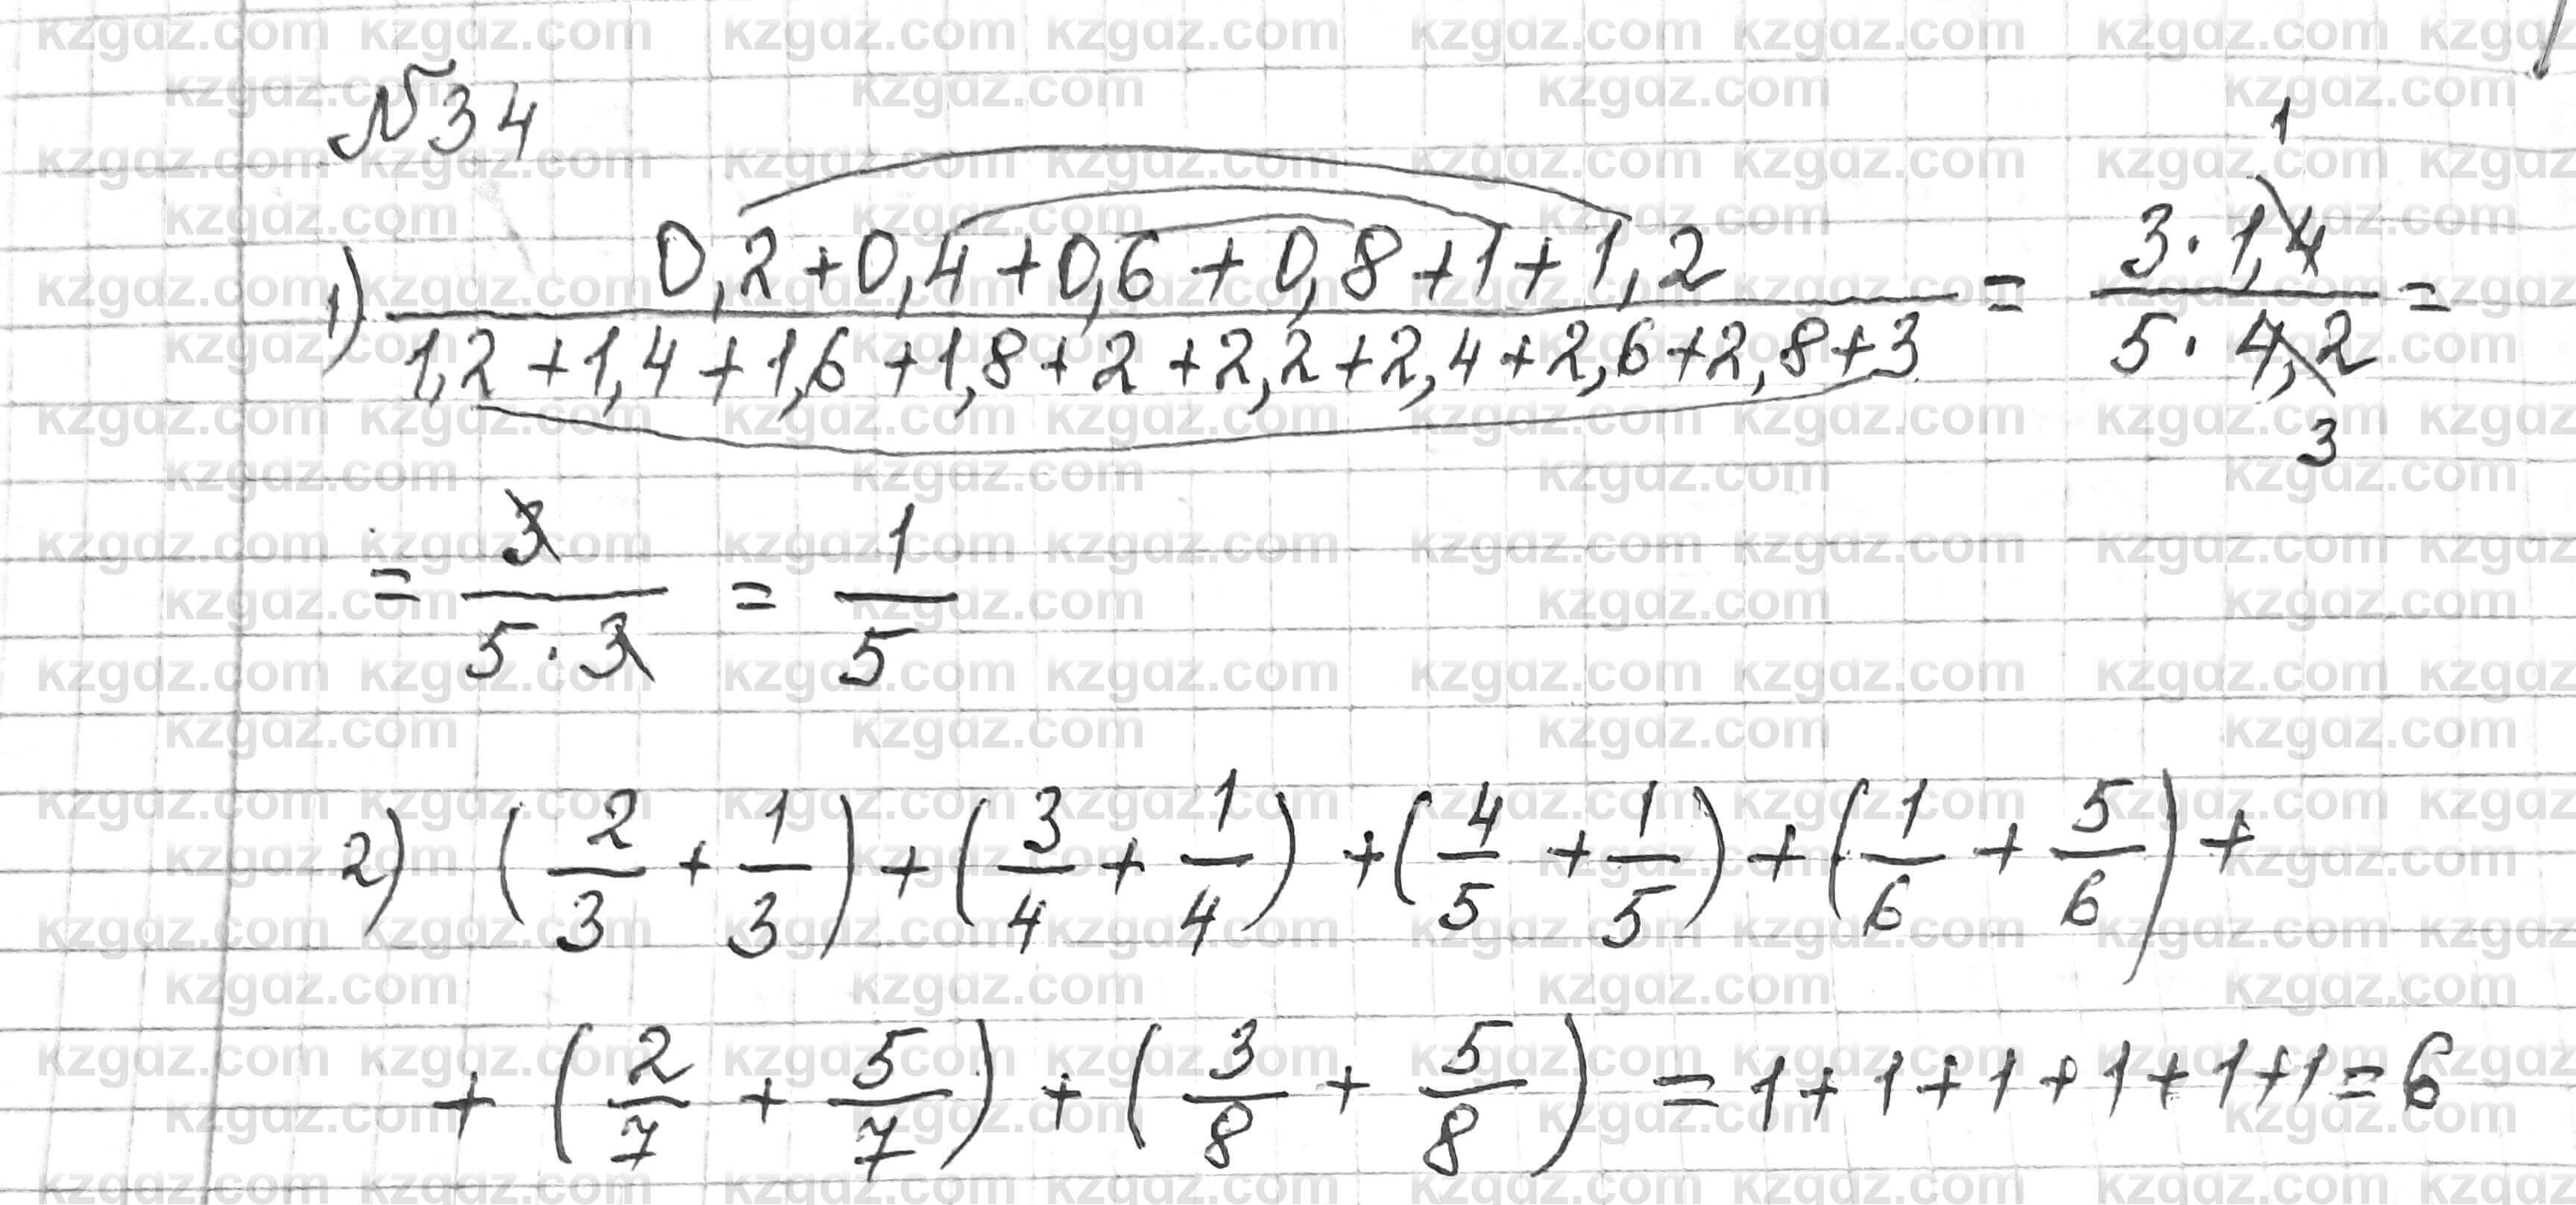 №34
1) (0,2+0,4+0,6+0,8+1+1,2)/(1,2+1,4+1,6+1,8+2+2,2+2,4+2,6+2,8+3) = (3·1,4)/(5·4,2) =
1
3
= 3/(5·3) = 1/5
2) (2/3+1/3)+(3/4+1/4)+(4/5+1/5)+(1/6+5/6)+
+(2/7+5/7)+(3/8+5/8)=1+1+1+1+1+1=6
kzgdz.com